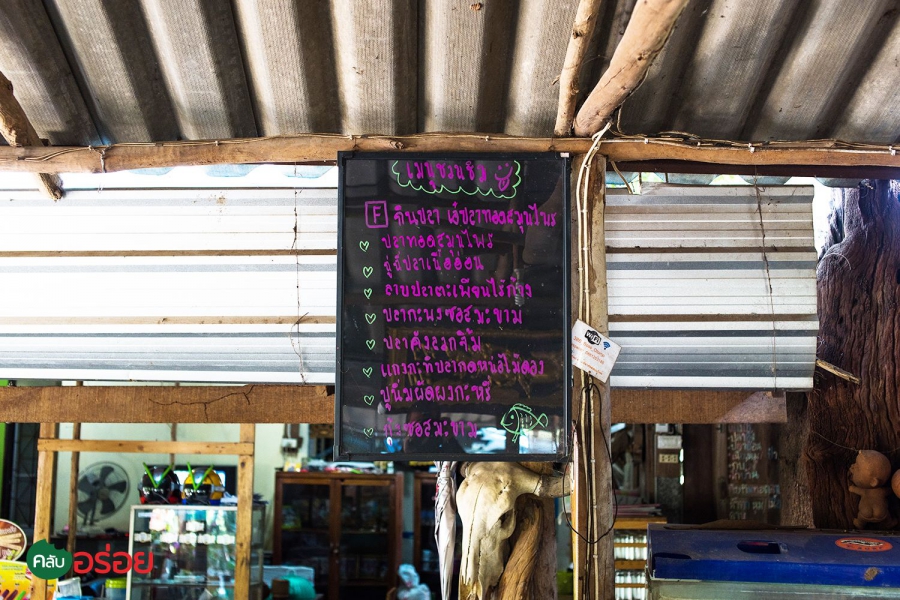 เมนูชวนชิม
F ต้นปลา เอ๋ปลาทอดสมุนไพร
ปลาทอดสมุนไพร
ฉู่ฉี่ปลาเนื้ออ่อน
ลาบปลาตะเพียนไร้ก้าง
ปลากะพงซอสมะขาม
ปลาคังลวกจิ้ม
แกงกะทิปลากดหน่อไม้ดอง
ปูนิ่มผัดผงกะหรี่
กุ้งซอสมะขาม
WiFi
คลับอร่อย